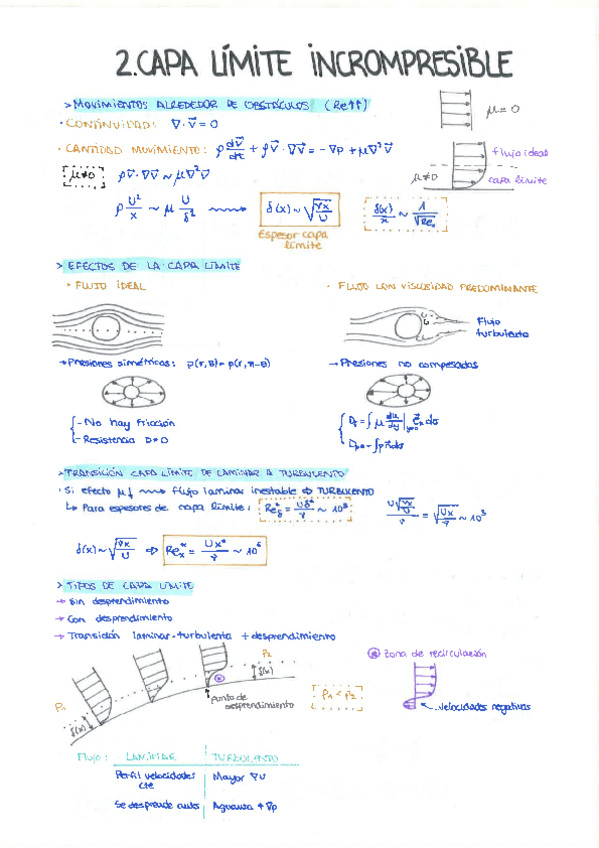 2. CAPA LÍMITE INCROMPRESIBLE
> MOVIMIENTOS ALREDEDOR DE OBSTÁCULOS (Re↑↑)
· CONTINUIDAD: ∇·v⃗ = 0
μ = 0
· CANTIDAD MOVIMIENTO: ρ dv⃗/dt + ρv⃗·∇v⃗ = -∇p + μ∇²v⃗
flujo ideal
μ≠0
capa límite
μ≠0 ρv⃗·∇v⃗ ~ μ∇²v⃗
ρ U²/x ~ μ U/δ² ⟿ δ(x) ~ √(νx/U) δ(x)/x ~ 1/√Re
Espesor capa límite
> EFECTOS DE LA CAPA LÍMITE
· FLUJO IDEAL
· FLUJO CON VISCOSIDAD PREDOMINANTE
Flujo turbulento
→ Presiones simétricas: p(r,θ) = p(r,π-θ)
→ Presiones no compensadas
- No hay fricción
- Resistencia D=0
> TRANSICIÓN CAPA LÍMITE DE LAMINAR A TURBULENTO
· Si efecto μ↓ ⟿ flujo laminar inestable ⇒ TURBULENTO
↳ Para espesores de capa límite: Re*δ = Uδ*/ν ~ 10³
U√(νx/U)/ν = √(Ux/ν) ~ 10³
δ(x) ~ √(νx/U) ⇒ Re*x = Ux*/ν ~ 10⁶
> TIPOS DE CAPA LÍMITE
→ Sin desprendimiento
→ Con desprendimiento
→ Transición laminar-turbulenta + desprendimiento
P2
Zona de recirculación
δ(x)
P1
P1 < P2
punto de desprendimiento
velocidades negativas
δ(x)
Flujo: LAMINAR TURBULENTO
Perfil velocidades cte Mayor ∇u
Se desprende antes Aguanta + ∇p